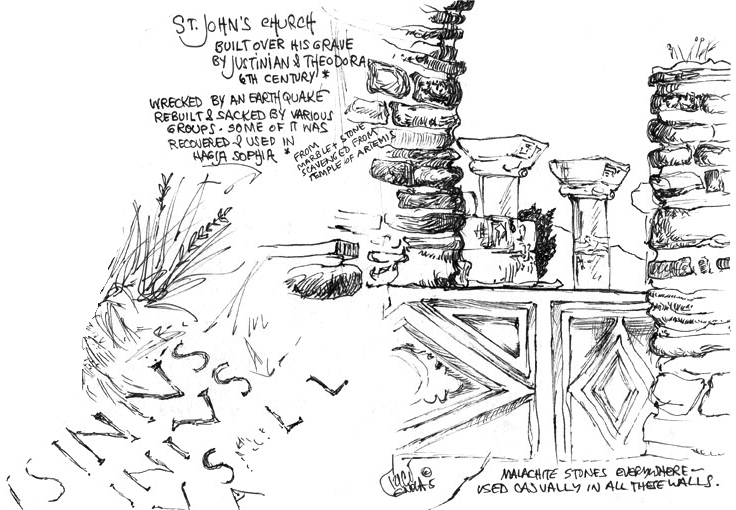 ST. JOHN'S CHURCH
BUILT OVER HIS GRAVE
BY JUSTINIAN & THEODORA
6TH CENTURY *
WRECKED BY AN EARTHQUAKE
REBUILT & SACKED BY VARIOUS
GROUPS. SOME OF IT WAS
RECOVERED & USED IN
HAGIA SOPHIA
* FROM
MARBLE + STONE
SCAVENGED FROM
TEMPLE OF ARTEMIS
ISINIVS
INIVS
VS LL
A
©
MALACHITE STONES EVERYWHERE ~
USED CASUALLY IN ALL THESE WALLS.